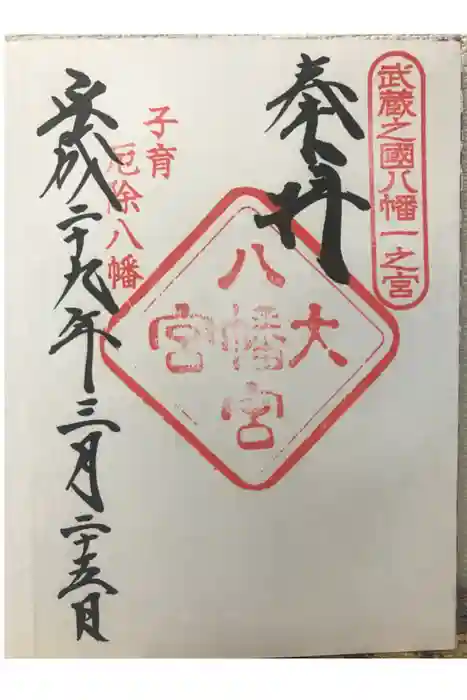 武蔵之國八幡一之宮
奉拝
大
八幡宮
宮
子育
厄除八幡
平成二十九年三月二十五日